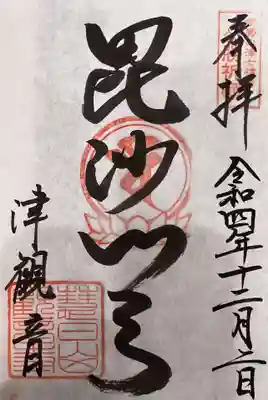 奉拝
令和四年十二月二日
毘沙門天
津觀音
慧日山